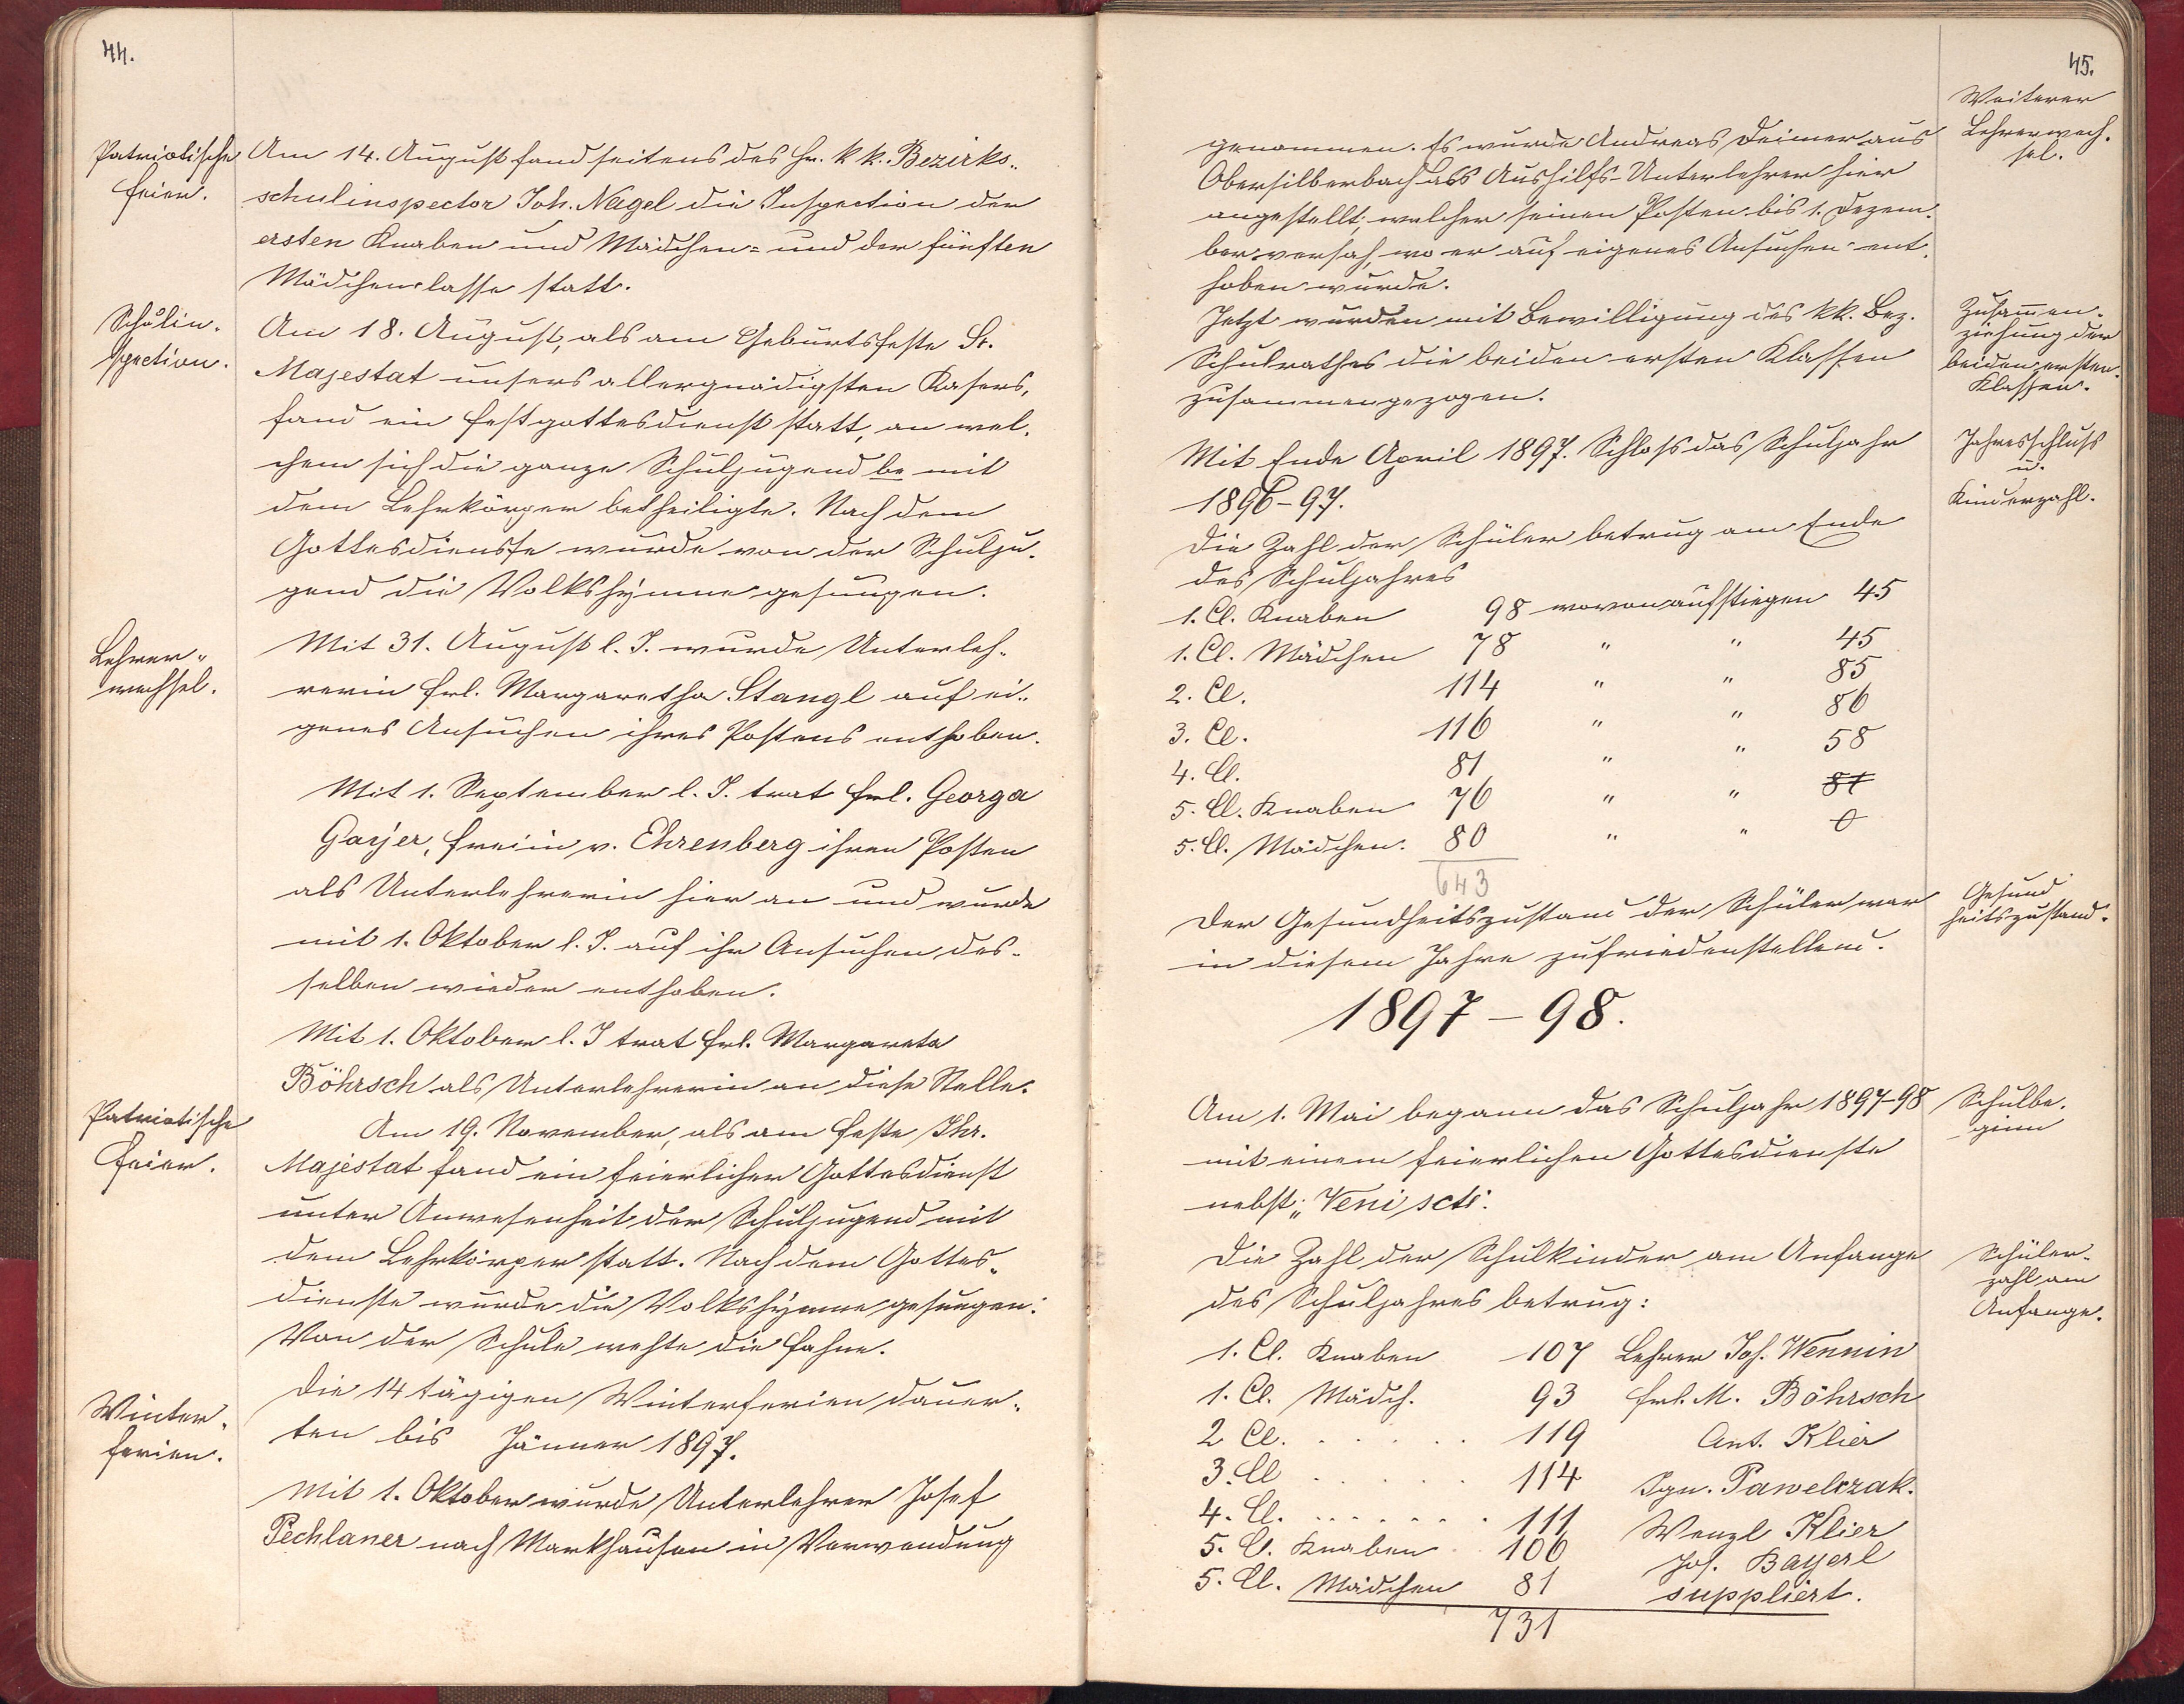 44.
Patriotische
Feier.
Am 14. August fand seitens des Hr. k k. Bezirks-
schulinspector Joh. Nagel die Inspection der
ersten Knaben und Mädchen= und der fünften
Mädchenclasse statt.
Schulin-
spection.
Am 18. August, als am Geburtsfeste Sr.
Majestat unsers allergnädigsten Kasers,
fand ein Festgottesdienst statt, an wel-
chem sich die ganze Schuljugend be mit
dem Lehrkörper betheiligte. Nach dem
Gottesdienste wurde von der Schulju-
gend die Volkshymne gesungen.
Lehrer-
wechsel.
Mit 31. August l. J. wurde Unterleh-
rerin Frl. Margaretha Stangl auf ei-
genes Ansuchen ihres Postens enthoben.
Mit 1. September l. J. trat Frl. Georga
Gayer, Freiin v. Ehrenberg ihren Posten
als Unterlehrerin hier an und wurde
mit 1. Oktober l. J. auf ihr Ansuchen des-
selben wieder enthoben.
Mit 1. Oktober l. J trat Frl. Margareta
Böhrsch als Unterlehrerin an diese Stelle.
Patriotische
Feier.
Am 19. November, als am Feste Ihr.
Majestat fand ein feierlicher Gottesdienst
unter Anwesenheit der Schuljugend mit
dem Lehrkörper statt. Nach dem Gottes-
dienste wurde die Volkshymne gesungen.
Von der Schule wehte die Fahne.
Winter-
ferien.
Die 14 tägigen Winterferien dauer-
ten bis Jänner 1897.
Mit 1. Oktober wurde Unterlehrer Josef
Pechlaner nach Markhausen in Verwendung
45.
Weiterer
Lehrerwech-
sel.
genommen. Es wurde Andreas Deimer aus
Obersilberbach als Aushilfs-Unterlehrer hier
angestellt, welcher seinen Posten bis 1. Dezem-
ber versah, wo er auf eigenes Ansuchen ent-
hoben wurde.
Zusam̄en-
ziehung der
beiden ersten
Klassen.
Jetzt wurden mit Bewilligung des kk. Bez.
Schulrathes die beiden ersten Klassen
zusammengezogen.
Jahresschluss
u.
Kinderzahl.
Mit Ende April 1897. Schloss das Schuljahr
1896-97.
Die Zahl der Schüler betrug am Ende
des Schuljahres
1. Cl. Knaben 98 wovon aufstiegen 45
1. Cl. Mädchen 78 " " 45
2. Cl. 114 " " 85
3. Cl. 116 " " 86
4. Cl. 81 " " 58
5. Cl. Knaben 76 " " 81
5. Cl. Mädchen. 80 " " 0
643
Gesund
heitszustand.
Der Gesundheitszustand der Schüler war
in diesem Jahre zufriedenstellend.
1897-98.
Schulbe-
ginn
Am 1. Mai begann das Schuljahr 1897-98
mit einem feierlichen Gottesdienste
nebst „Veni scte".
Schüler-
zahl am
Anfange.
Die Zahl der Schulkinder am Anfange
des Schuljahres betrug:
1. Cl. Knaben 107 Lehrer Jos. Wennin
1. Cl. Mädch. 93 Frl. M. Böhrsch
2 Cl. . . . . . 119 Ant. Klier
3. Cl . . . . . 114 Ign. Pawelczak.
4. Cl. . . . . . . . 111 Wenzl Klier
5. Cl. Knaben 106 Jos. Bayerl
5. Cl. Mädchen 81 suppliert.
731